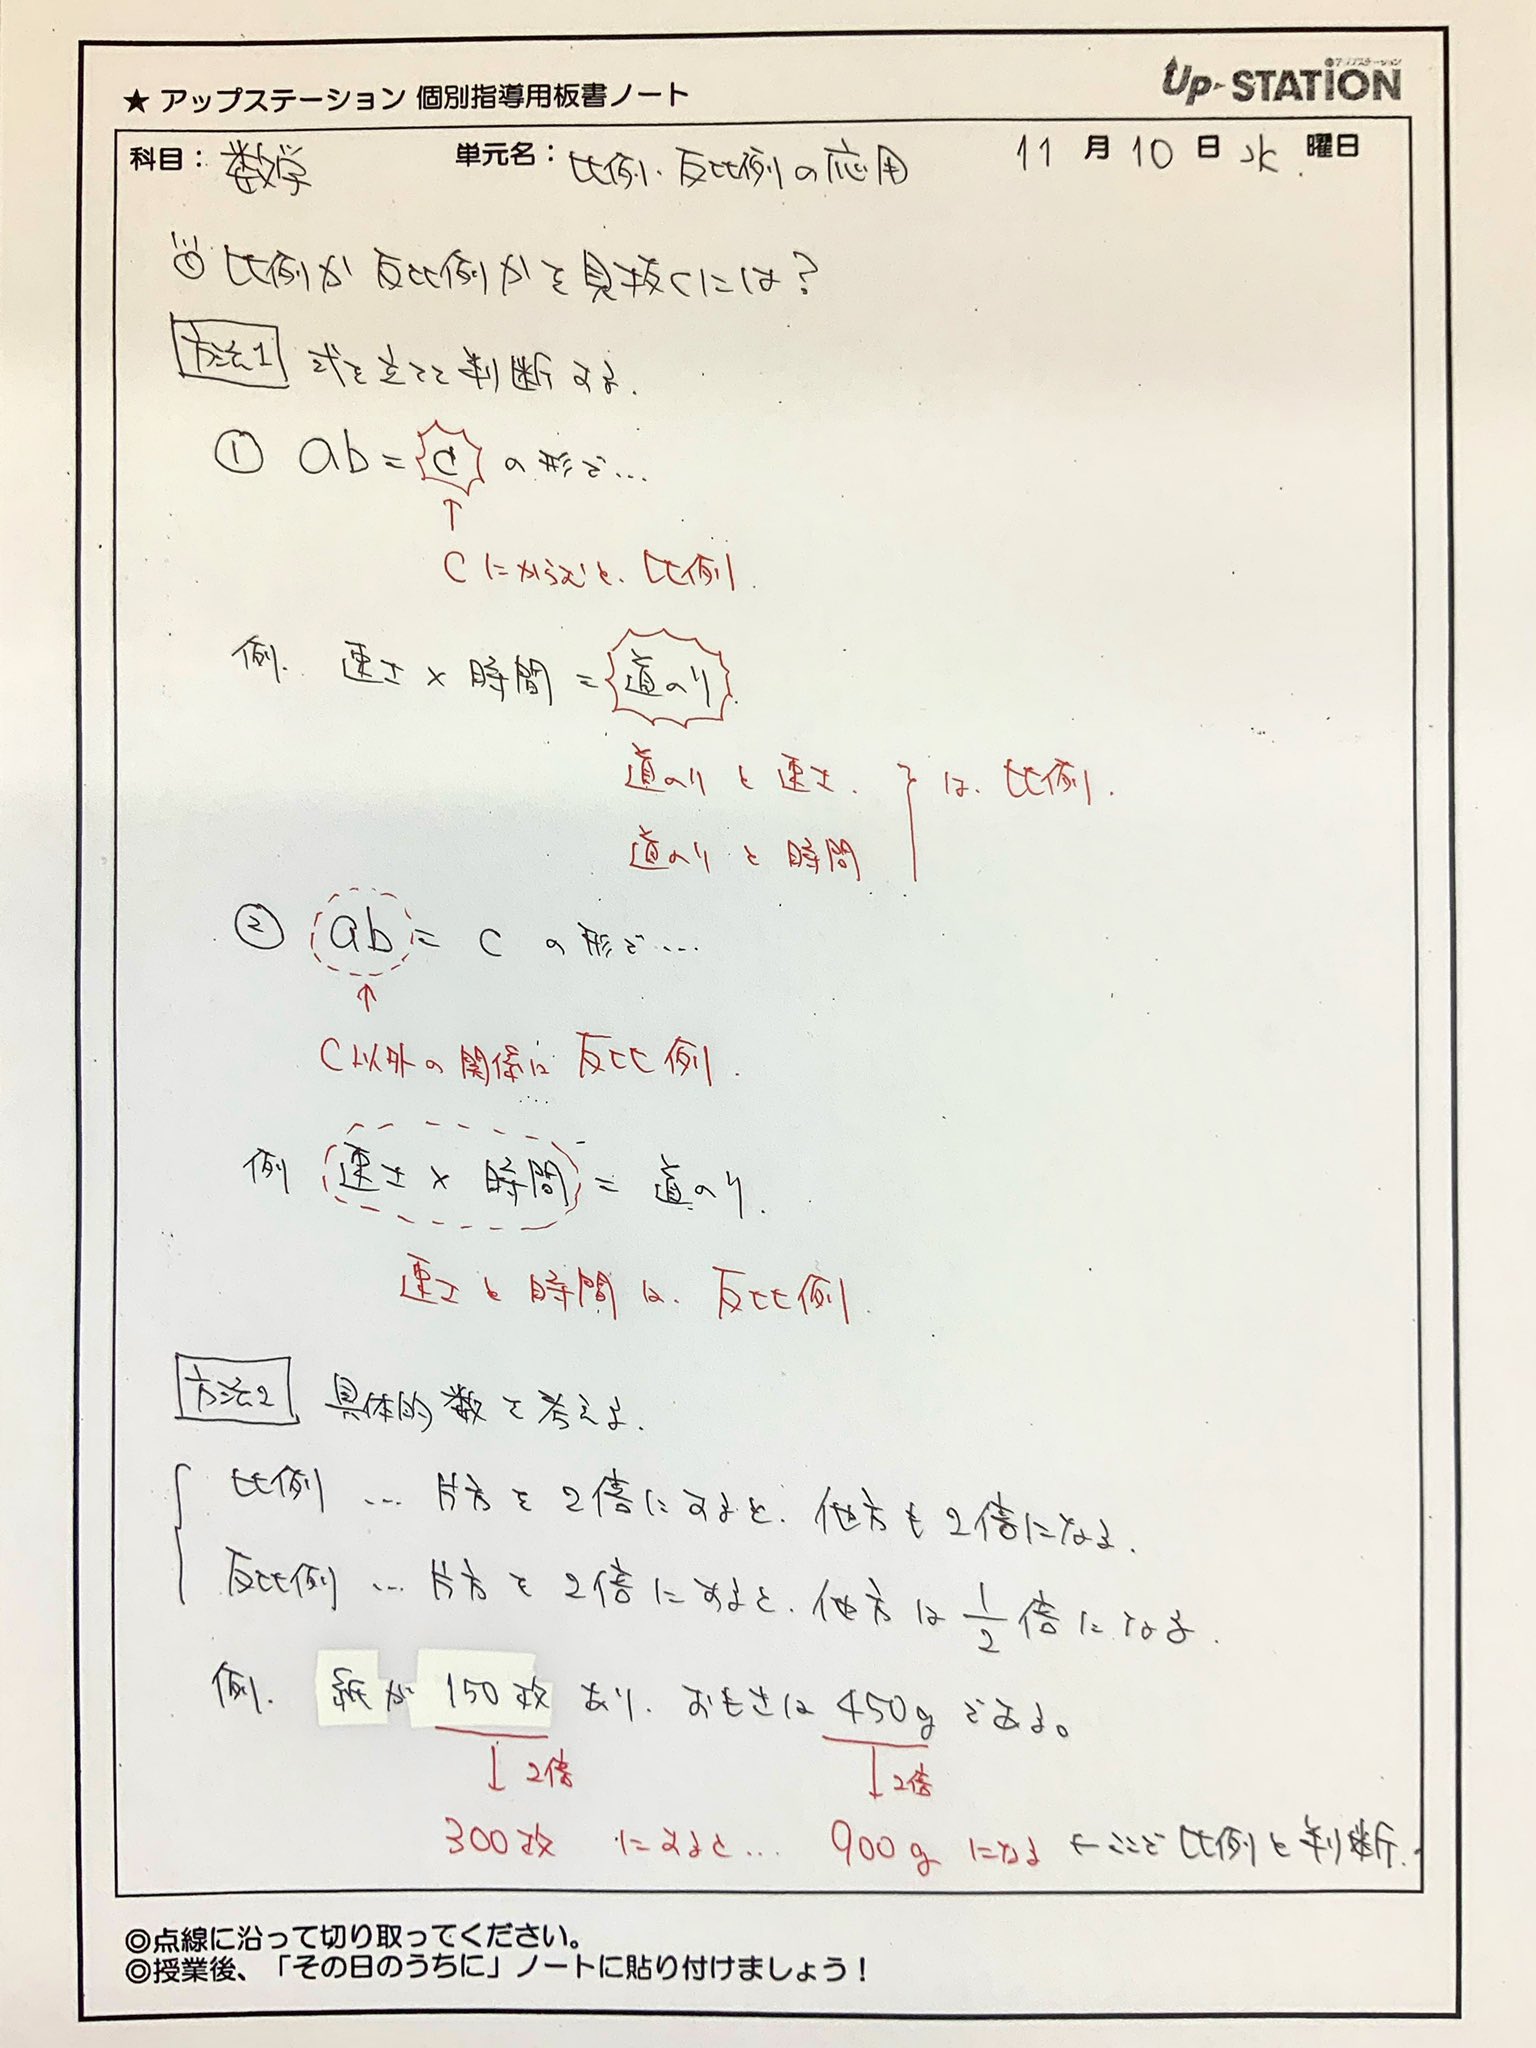 ★ アップステーション 個別指導用板書ノート
アップステーション
Up-STATION
科目： 数学 単元名： 比例・反比例の応用 11月10日水曜日
比例か反比例かを見抜くには？
方法1 式を立てて判断する.
① ab = c の形で…
↑
cにからむと、比例.
例. 速さ × 時間 = 道のり.
道のりと速さ.
は、比例.
道のりと時間
② ab = c の形で…
↑
C以外の関係は反比例.
例 速さ × 時間 = 道のり.
速さと時間は、反比例.
方法2 具体的数で考える.
比例 … 片方を2倍にすると、他方も2倍になる.
反比例 … 片方を2倍にすると、他方は1/2倍になる.
例. 紙が150枚あり、おもさは450gである。
↓2倍 ↓2倍
300枚 にすると… 900gになる ←ここで比例と判断.
◎点線に沿って切り取ってください。
◎授業後、「その日のうちに」ノートに貼り付けましょう！